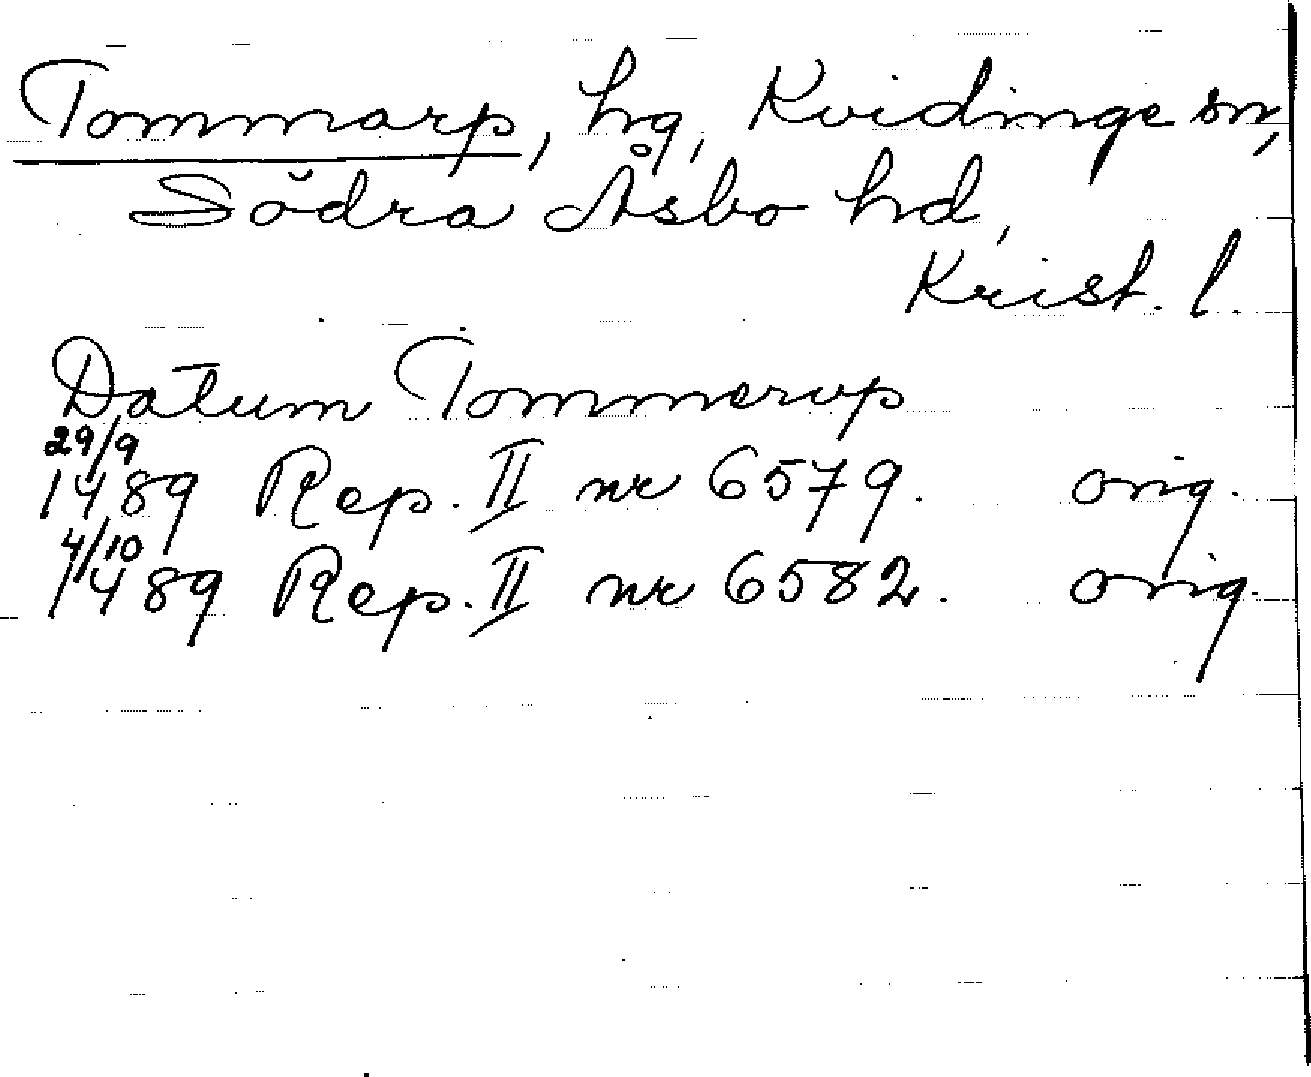 Tommarp, hg, Kvidinge sn,
Södra Åsbo hd,
Krist. l.
Datum Tommerup
29/9
1489 Rep. II nr 6579. orig.
4/10
1489 Rep. II nr 6582. orig.